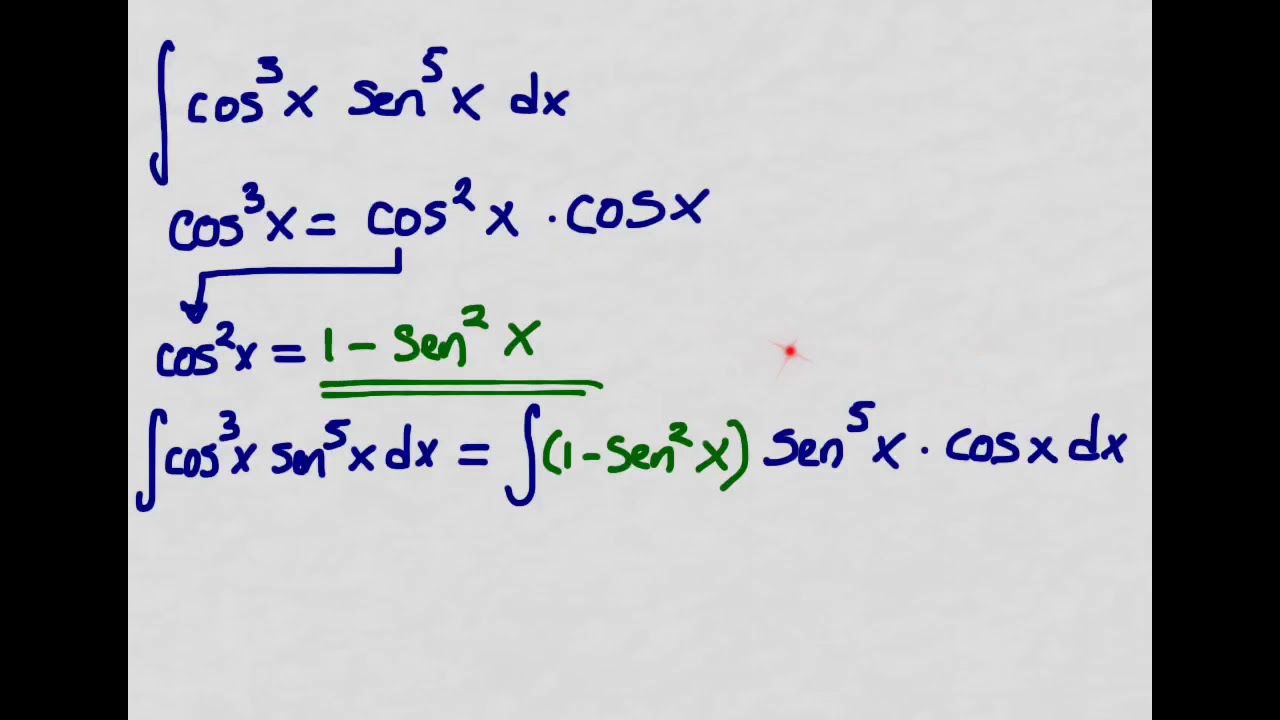 ∫ cos³x sen⁵x dx
cos³x = cos²x · cosx
cos²x = 1 - sen²x
∫ cos³x sen⁵x dx = ∫ (1 - sen²x) sen⁵x · cosx dx